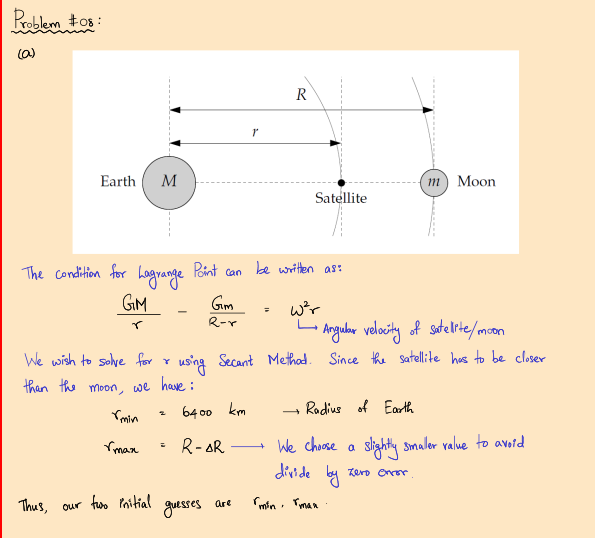 Problem #08:
(a)
R
r
Earth M m Moon
Satellite
The condition for Lagrange Point can be written as:
GM/r - Gm/(R-r) = ω²r
↳ Angular velocity of satellite/moon
We wish to solve for r using Secant Method. Since the satellite has to be closer
than the moon, we have:
r_min = 6400 km → Radius of Earth
r_max = R - ΔR → We choose a slightly smaller value to avoid
divide by zero error.
Thus, our two initial guesses are r_min, r_max.